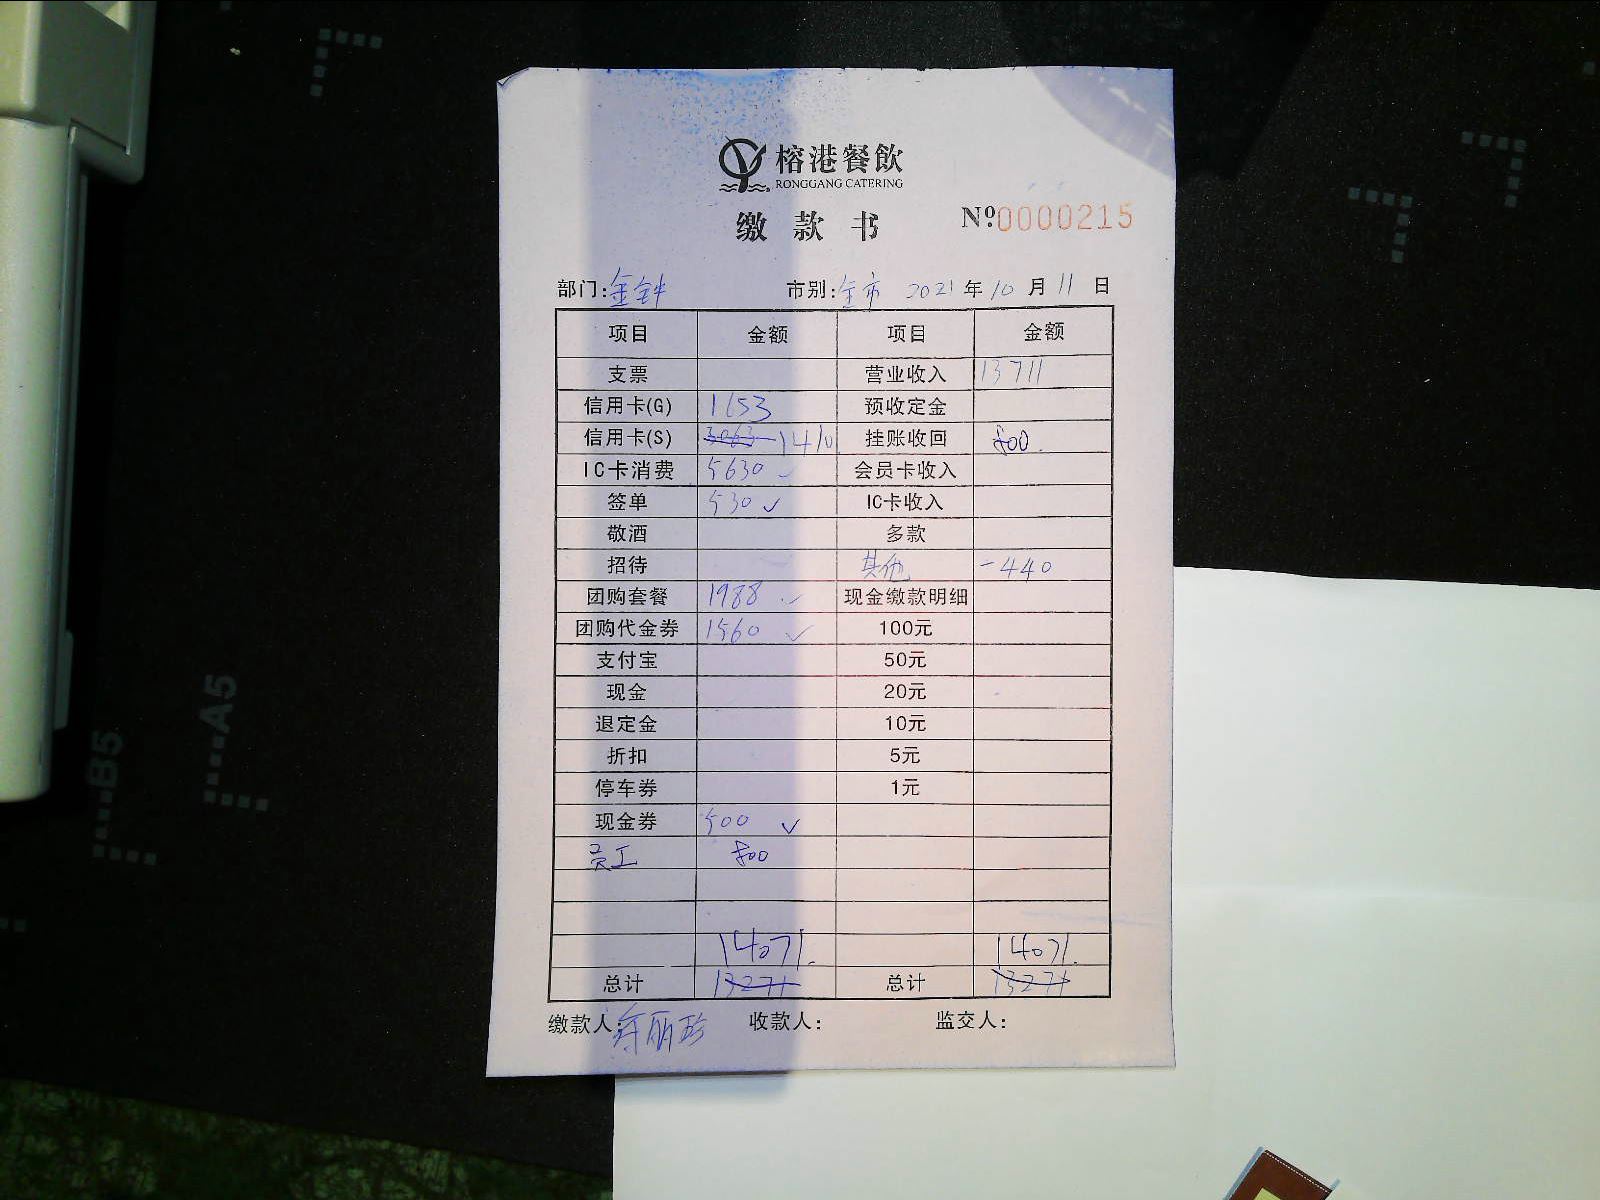 榕港餐飲
RONGGANG CATERING
缴款书 Nº0000215
部门:金钟 市别:全市 2021年10月11日
项目 金额 项目 金额
支票 营业收入 13711
信用卡(G) 1653 预收定金
信用卡(S) 3063 1410 挂账收回 800.
IC卡消费 5630 会员卡收入
签单 530 ✓ IC卡收入
敬酒 多款
招待 其他 -440
团购套餐 1988 ✓ 现金缴款明细
团购代金券 1560 ✓ 100元
支付宝 50元
现金 20元
退定金 10元
折扣 5元
停车券 1元
现金券 500 ✓
员工 800
14071. 14071.
总计 13271 总计 13271
缴款人: 丽珍 收款人: 监交人:
A5
B5